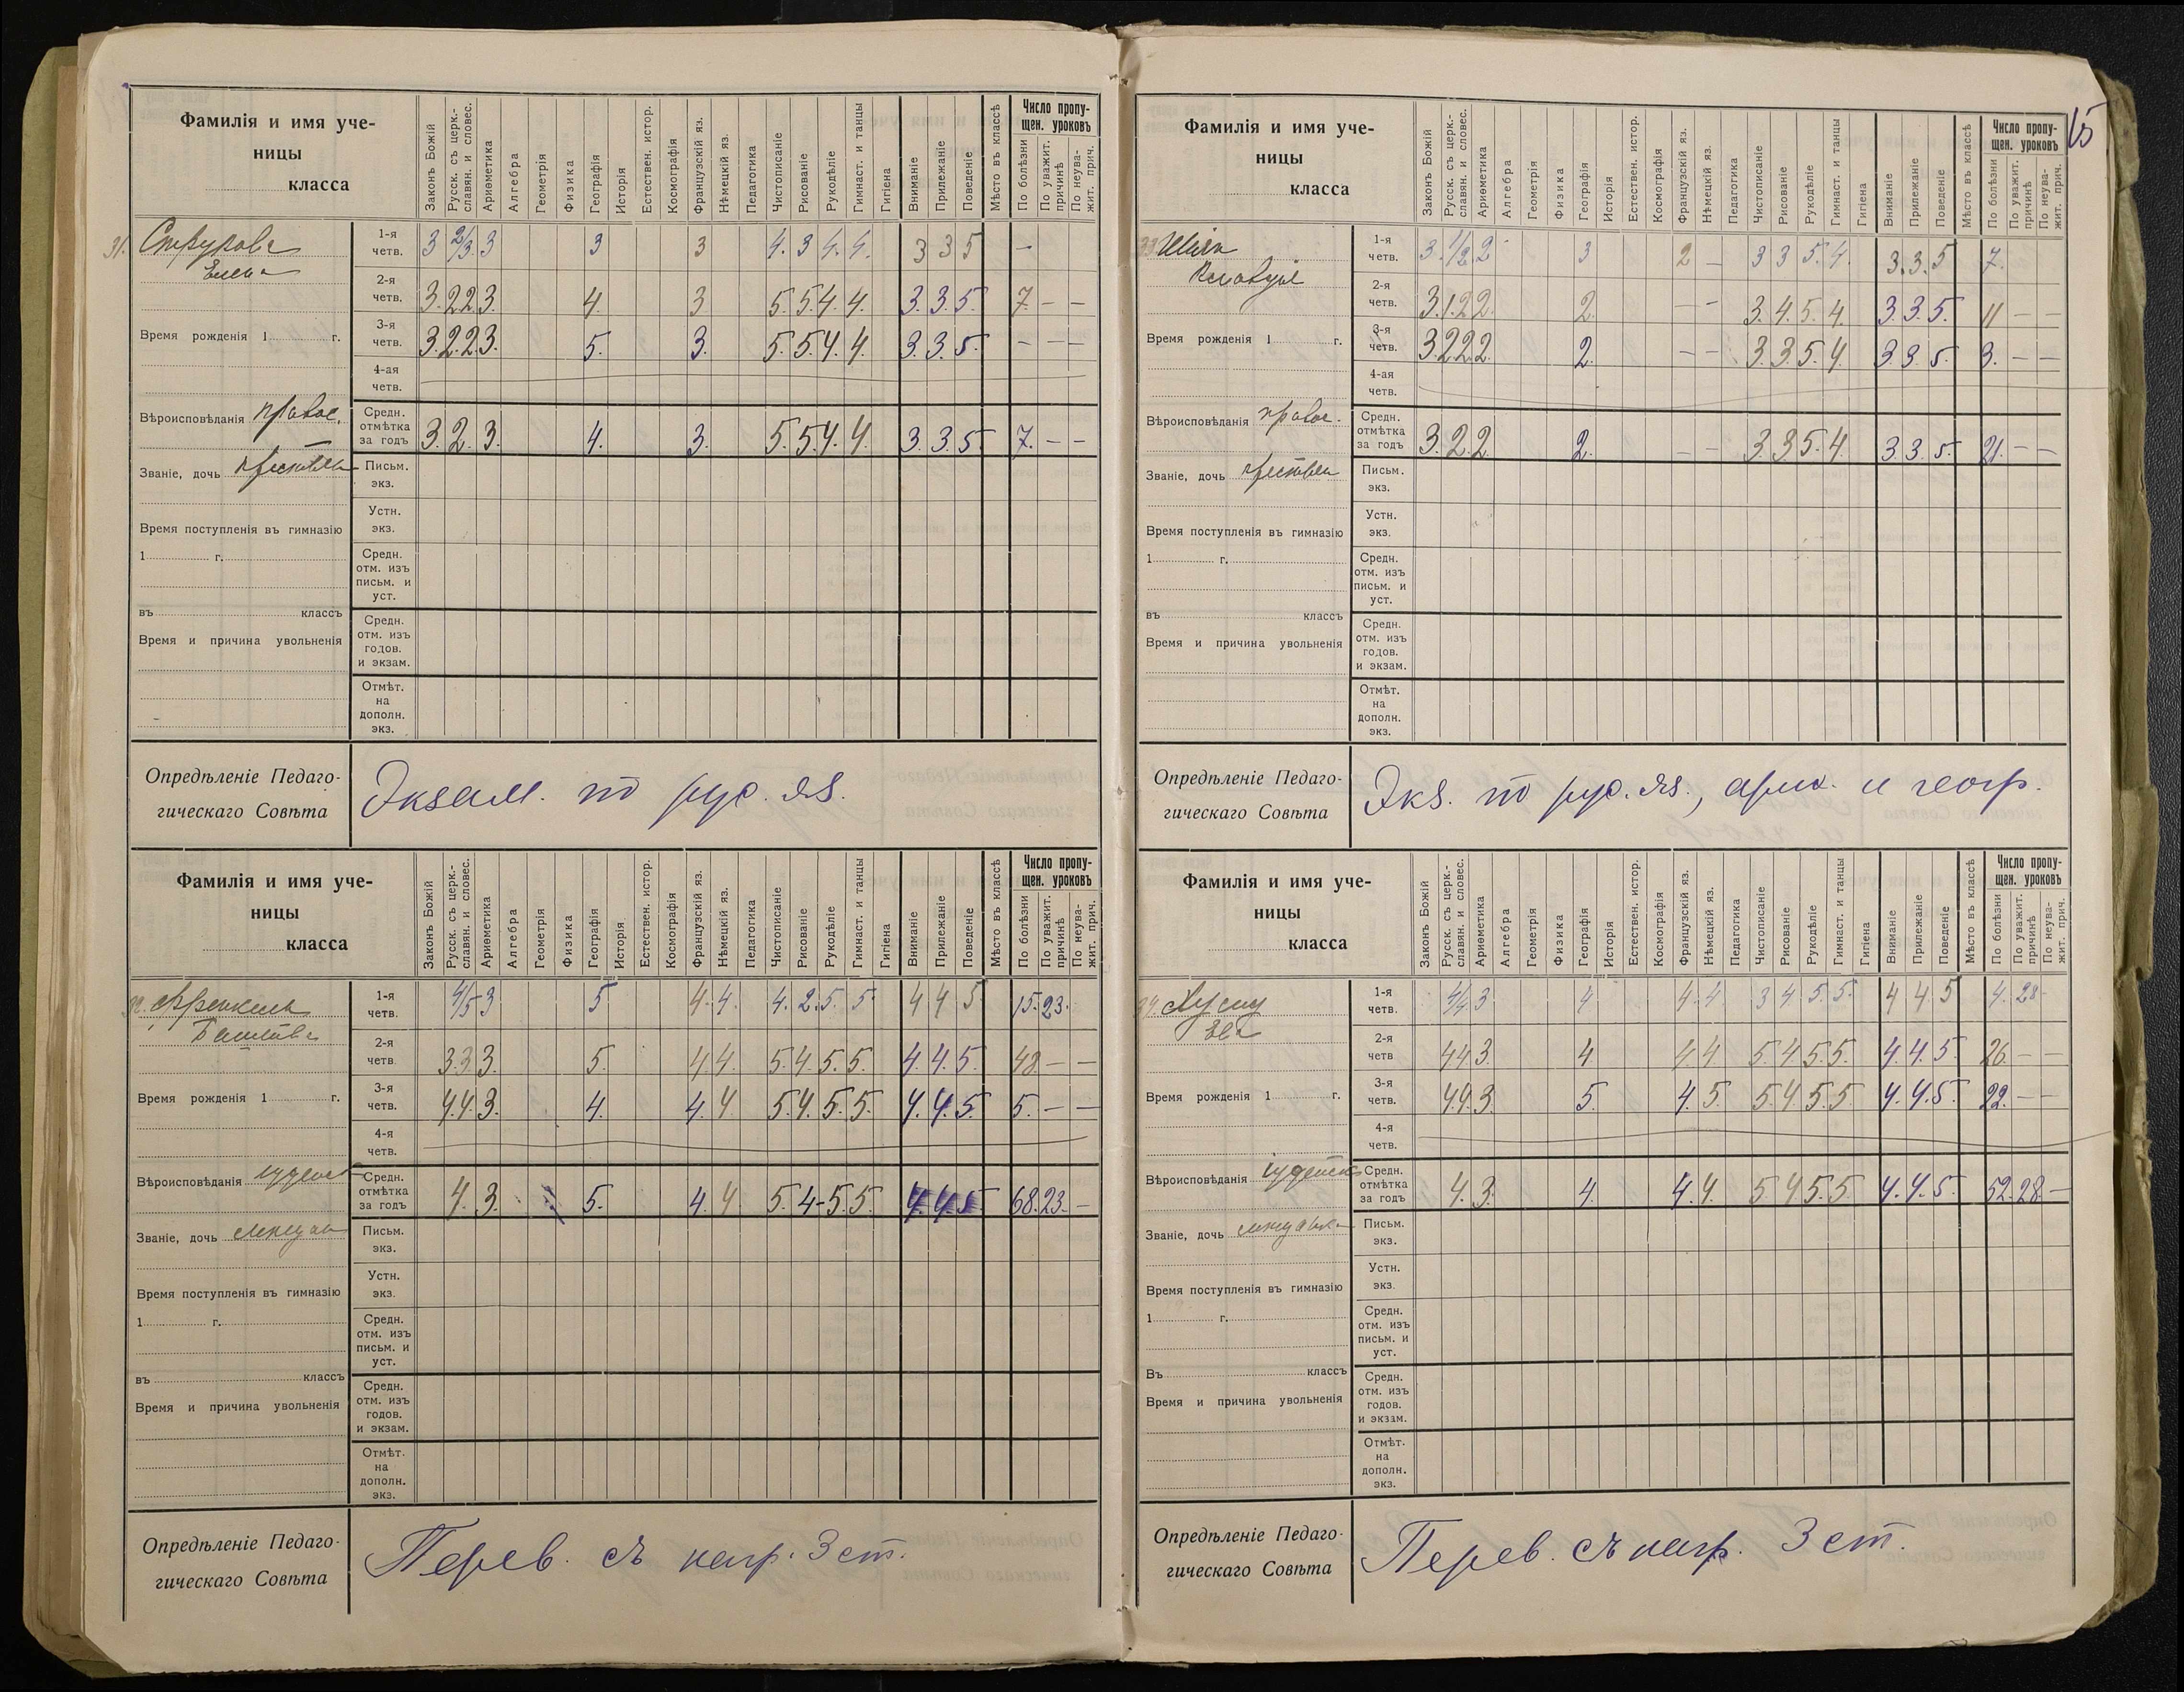 15
Фамилія и имя уче-
ницы
класса
Законъ Божій
Русск. съ церк.-
славян. и словес.
Ариѳметика
Алгебра
Геометрія
Физика
Географія
Исторія
Естествен. истор.
Космографія
Французскій яз.
Нѣмецкій яз.
Педагогика
Чистописаніе
Рисованіе
Рукодѣліе
Гимнаст. и танцы
Гигіена
Вниманіе
Прилежаніе
Поведеніе
Мѣсто въ классѣ
Число пропу-
щен. уроковъ
По болѣзни
По уважит.
причинѣ
По неува-
жит. прич.
31.
Елена
1-я четв. 3 2/3. 3 3 3 4. 3 4. 4. 3 3 5 -
2-я четв. 3. 2 2 3. 4. 3 5. 5. 4 4. 3. 3. 5. 7. - -
Время рожденія 1 г.
3-я четв. 3. 2. 2. 3. 5. 3. 5. 5. 4. 4. 3. 3. 5. - - -
4-ая четв.
Вѣроисповѣданія правос.
Средн. отмѣтка за годъ 3. 2. 3. 4. 3. 5. 5. 4. 4. 3. 3. 5. 7. - -
Званіе, дочь
Письм. экз.
Устн. экз.
Время поступленія въ гимназію
1 г.
Средн. отм. изъ письм. и уст.
въ классъ
Время и причина увольненія
Средн. отм. изъ годов. и экзам.
Отмѣт. на дополн. экз.
Опредѣленіе Педаго-
гическаго Совѣта
Экзам. по рус. яз.
Фамилія и имя уче-
ницы
класса
Законъ Божій
Русск. съ церк.-
славян. и словес.
Ариѳметика
Алгебра
Геометрія
Физика
Географія
Исторія
Естествен. истор.
Космографія
Французскій яз.
Нѣмецкій яз.
Педагогика
Чистописаніе
Рисованіе
Рукодѣліе
Гимнаст. и танцы
Гигіена
Вниманіе
Прилежаніе
Поведеніе
Мѣсто въ классѣ
Число пропу-
щен. уроковъ
По болѣзни
По уважит.
причинѣ
По неува-
жит. прич.
32. Френкель
1-я четв. 4/5 3 5 4. 4. 4. 2. 5. 5. 4 4 5 15. 23.
2-я четв 3 3 3. 5. 4 4. 5. 4. 5. 5. 4. 4. 5. 48 - -
Время рожденія 1 г.
3-я четв. 4. 4. 3. 4. 4. 4 5. 4. 5. 5. 4. 4. 5. 5. - -
4-я четв.
Вѣроисповѣданія
Средн. отмѣтка за годъ 4. 3. 5. 4. 4 5. 4 - 5. 5. 4. 4. 5 68. 23. -
Званіе, дочь
Письм. экз.
Устн. экз.
Время поступленія въ гимназію
1 г.
Средн. отм. изъ письм. и уст.
въ классъ
Время и причина увольненія
Средн. отм. изъ годов. и экзам.
Отмѣт. на дополн. экз.
Опредѣленіе Педаго-
гическаго Совѣта
Перев. съ нагр. 3 ст.
Фамилія и имя уче-
ницы
класса
Законъ Божій
Русск. съ церк.-
славян. и словес.
Ариѳметика
Алгебра
Геометрія
Физика
Географія
Исторія
Естествен. истор.
Космографія
Французскій яз.
Нѣмецкій яз.
Педагогика
Чистописаніе
Рисованіе
Рукодѣліе
Гимнаст. и танцы
Гигіена
Вниманіе
Прилежаніе
Поведеніе
Мѣсто въ классѣ
Число пропу-
щен. уроковъ
По болѣзни
По уважит.
причинѣ
По неува-
жит. прич.
33
Клавдія
1-я четв. 3. 1/2. 2 3 2 - 3 3 5. 4. 3. 3. 5 7.
2-я четв. 3. 1. 2 2. 2. - - 3. 4. 5. 4. 3. 3. 5. 11 - -
Время рожденія 1 г.
3-я четв. 3. 2 2 2. 2. - - 3. 3. 5. 4. 3 3 5. 3. - -
4-ая четв.
Вѣроисповѣданія правос.
Средн. отмѣтка за годъ 3. 2. 2. 2. - - 3. 3. 5. 4. 3. 3. 5. 21. - -
Званіе, дочь
Письм. экз.
Устн. экз.
Время поступленія въ гимназію
1 г.
Средн. отм. изъ письм. и уст.
въ классъ
Время и причина увольненія
Средн. отм. изъ годов. и экзам.
Отмѣт. на дополн. экз.
Опредѣленіе Педаго-
гическаго Совѣта
Экз. по рус. яз., ариѳ. и геогр.
Фамилія и имя уче-
ницы
класса
Законъ Божій
Русск. съ церк.-
славян. и словес.
Ариѳметика
Алгебра
Геометрія
Физика
Географія
Исторія
Естествен. истор.
Космографія
Французскій яз.
Нѣмецкій яз.
Педагогика
Чистописаніе
Рисованіе
Рукодѣліе
Гимнаст. и танцы
Гигіена
Вниманіе
Прилежаніе
Поведеніе
Мѣсто въ классѣ
Число пропу-
щен. уроковъ
По болѣзни
По уважит.
причинѣ
По неува-
жит. прич.
34.
Ева
1-я четв. 4/4. 3 4 4. 4. 3 4 5. 5. 4 4 5 4. 28 -
2-я четв 4 4 3. 4 4. 4 5. 4 5 5. 4. 4. 5. 26. - -
Время рожденія 1 г.
3-я четв. 4. 4. 3 5. 4. 5. 5. 4 5 5. 4. 4. 5. 22. - -
4-я четв.
Вѣроисповѣданія іудейск
Средн. отмѣтка за годъ 4. 3. 4. 4. 4. 5 4 5. 5 4. 4. 5. 52. 28 -
Званіе, дочь
Письм. экз.
Устн. экз.
Время поступленія въ гимназію
1 г.
Средн. отм. изъ письм. и уст.
Въ классъ
Время и причина увольненія
Средн. отм. изъ годов. и экзам.
Отмѣт. на дополн. экз.
Опредѣленіе Педаго-
гическаго Совѣта
Перев. съ нагр. 3 ст.